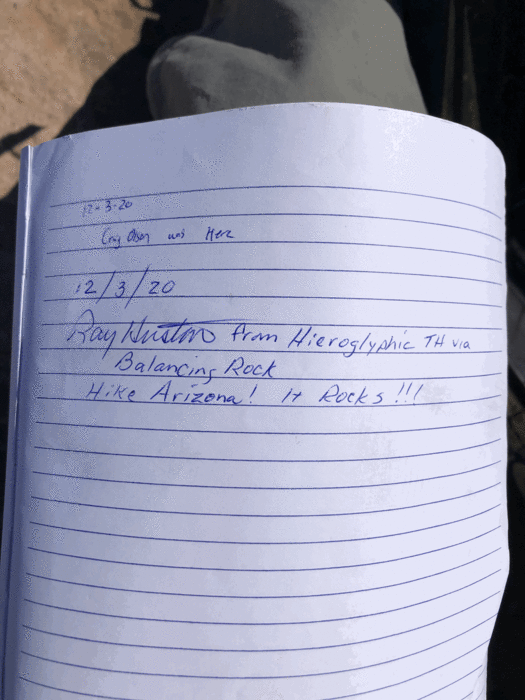 12-3-20
Olsen was Here
12/3/20
Ray Huston from Hieroglyphic TH via
Balancing Rock
Hike Arizona! It Rocks!!!